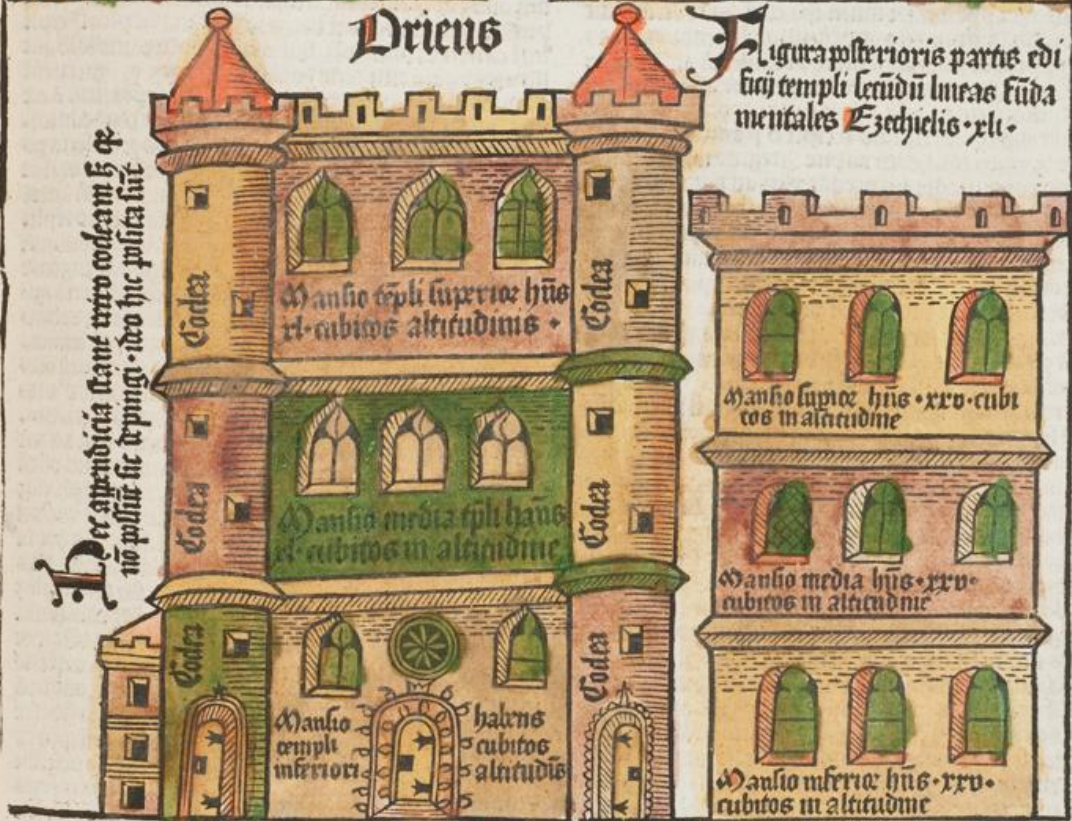 Oriens
Figura posterioris partis edi
ficij templi secūdū lineas fūda
mentales Ezechielis · xli ·
Hec appendicia stant retro
nō possūt sic depingi · ideo hic posita sūt
Coclea
Coclea
Mansio tēpli superior hn̄s
xl · cubitos altitudinis ·
Coclea
Coclea
Mansio media tp̄li habn̄s
xl · cubitos in altitudine
Coclea
Coclea
Mansio habens
templi cubitos
inferiori altitudīs
Mansio supior hn̄s · xxv · cubi
tos in altitudine
Mansio media hn̄s · xxv ·
cubitos in altitudine
Mansio inferior hn̄s · xxv ·
cubitos in altitudine